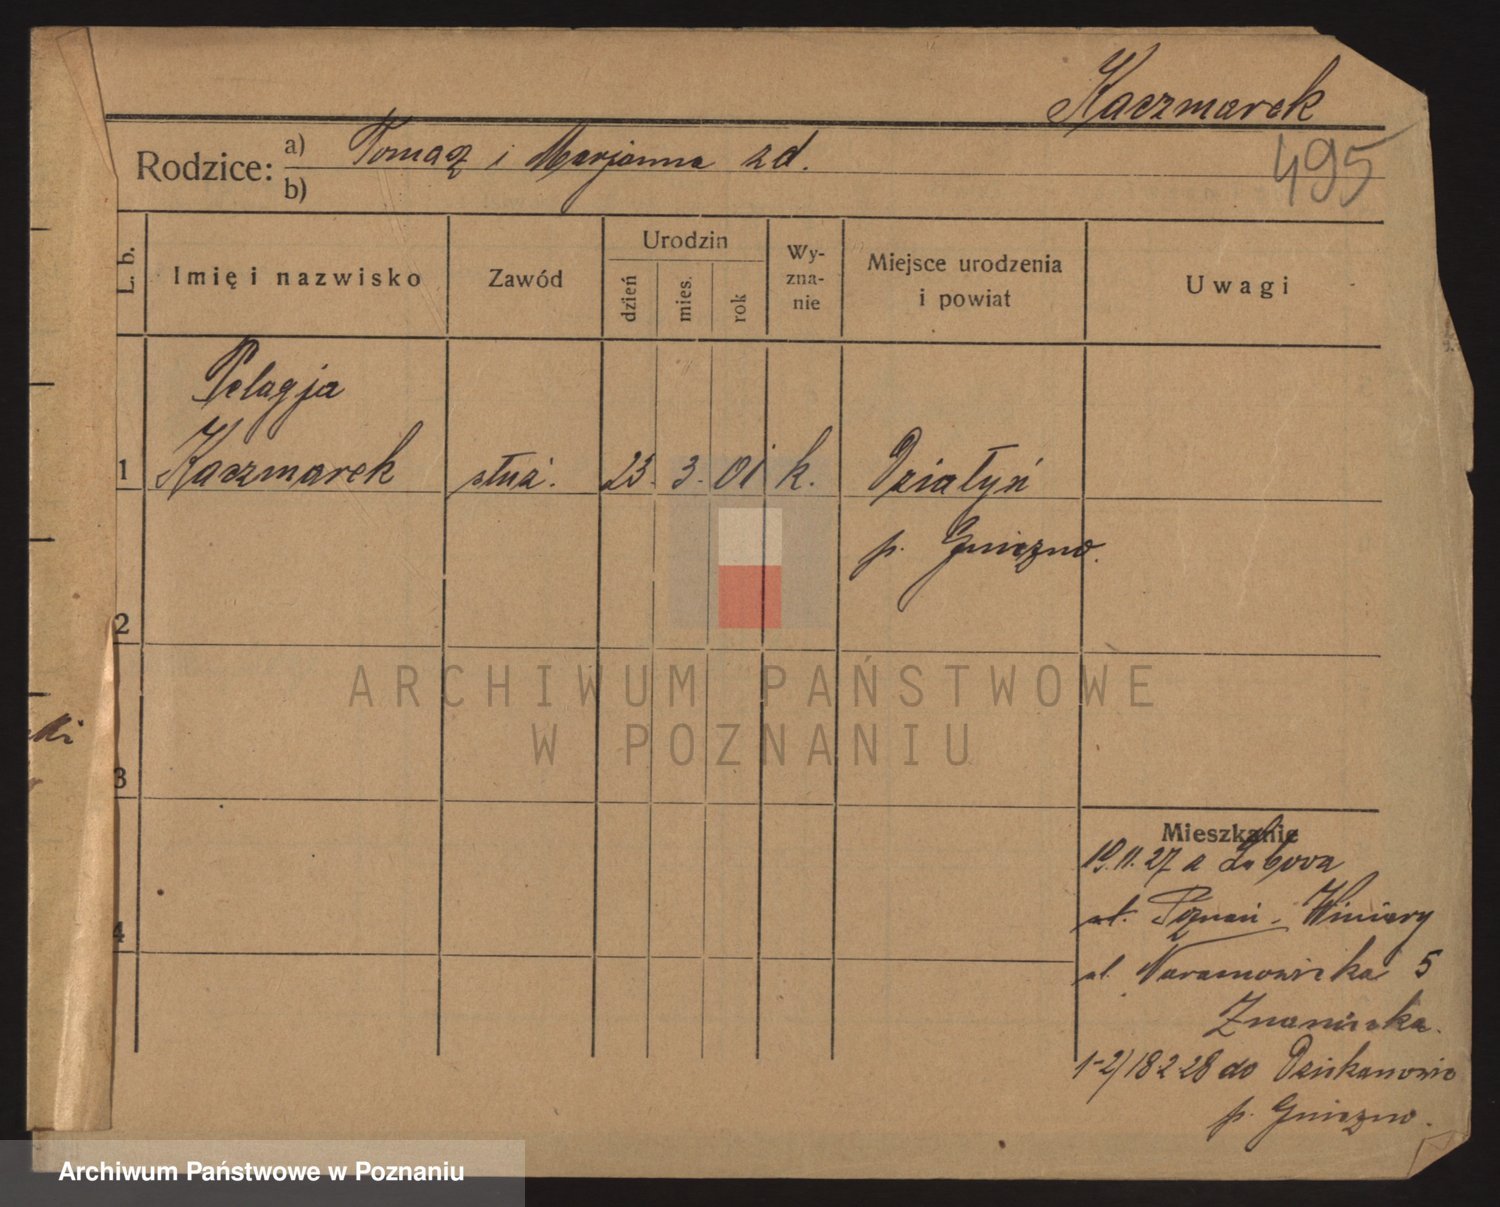 Kaczmarek
495
Rodzice: a) Tomasz i Marjanna zd.
b)
L. b.
Imię i nazwisko
Zawód
Urodzin
dzień
mies.
rok
Wy-
zna-
nie
Miejsce urodzenia
i powiat
Uwagi
Pelagja
1 Kaczmarek służ. 23. 3. 01 k. Działyń
p. Gniezno.
2
ARCHIWUM PAŃSTWOWE
W POZNANIU
3
ki
Mieszkanie
19.11.27 a
4
Poznań - Winiary
ul. Naramowicka 5
18.2.28 do Dziekanowic
p. Gniezno.
Archiwum Państwowe w Poznaniu